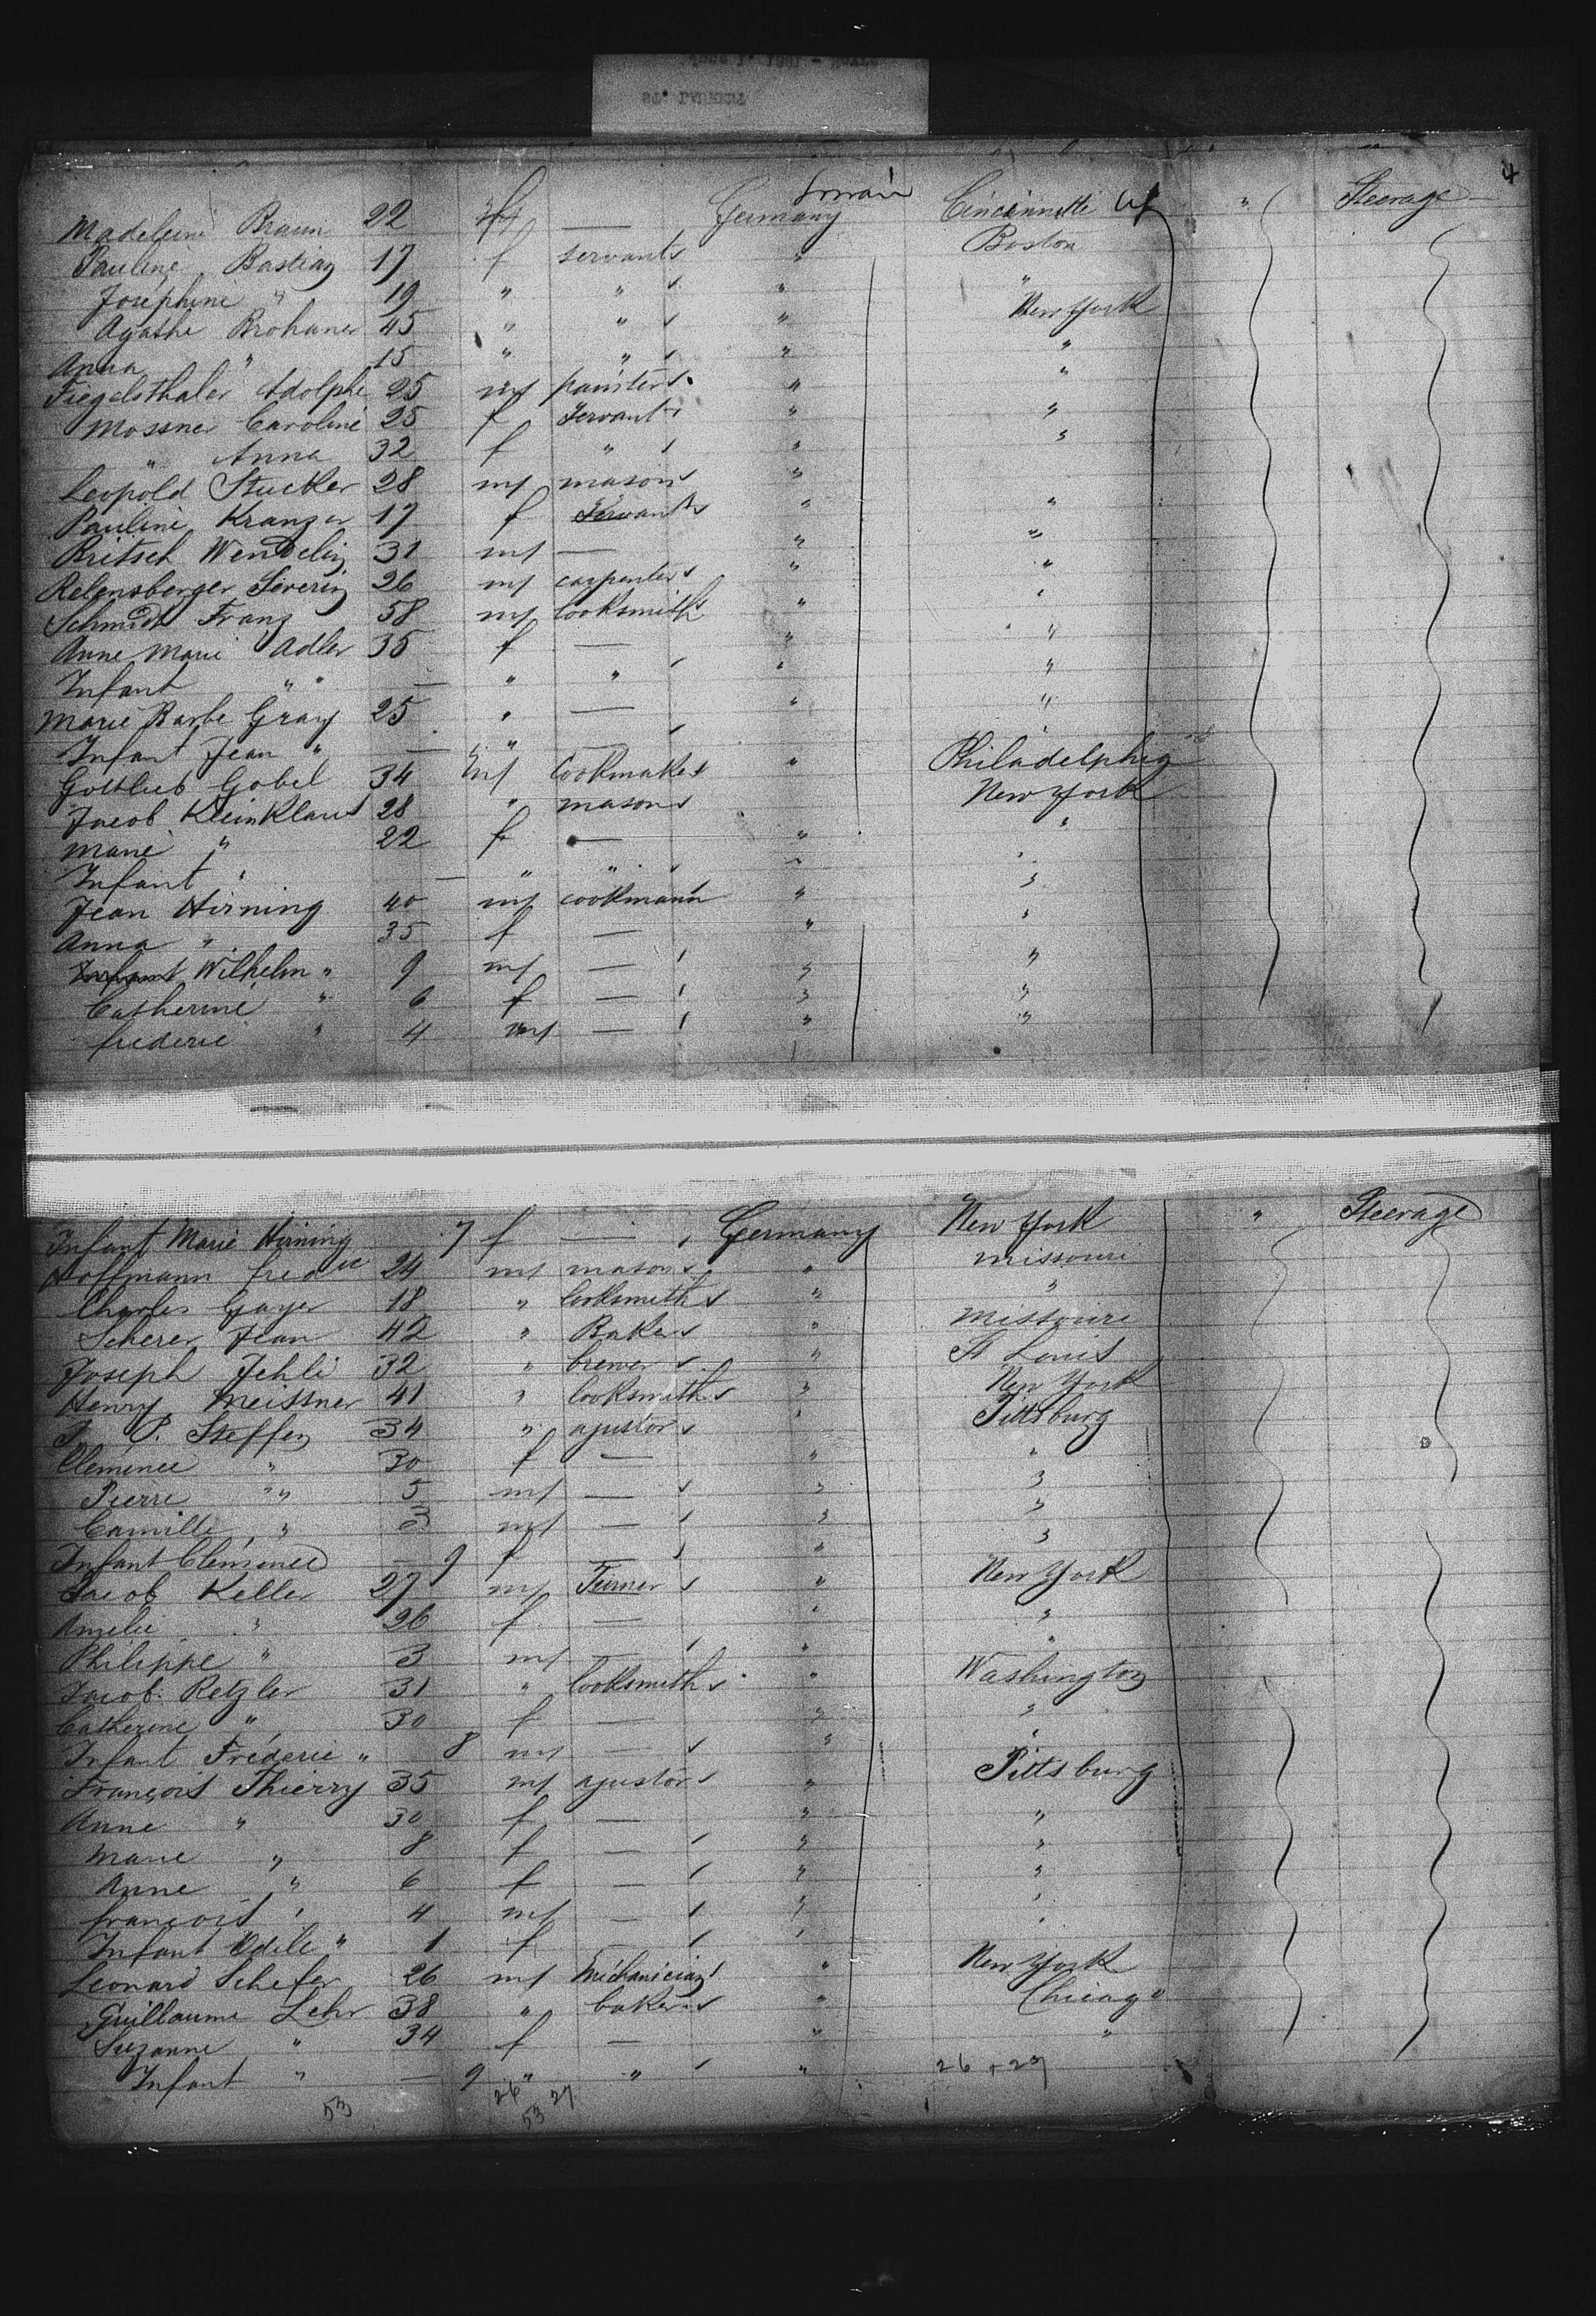 4
Madeleine Braun 22 f — Germany Cincinnatti " Steerage
Pauline Bastian 17 f servant " Boston
Josephine " 19 " " " "
Agathe Brohaner 45 " " " New York
Anna " 15 " " " "
Fiegelsthaler Adolphe 25 m painter " "
Mossner Caroline 25 f Servant " "
" Anna 32 f " " "
Leopold Stucker 28 m mason "
Pauline Kranzer 17 f Servant " "
Britsch Wendelin 31 m — " "
Relensberger Severin 26 m carpenter " "
Schmidt Franz 58 m locksmith " "
Anne Marie Adler 35 f — " "
Infant " " — " " " "
Marie Barbe Gray 25 " — " "
Infant Jean " — " —
Gottlieb Gobel 34 m " Philadelphia
Jacob Kleinklaus 28 " mason New York
Marie " 22 f — " "
Infant " — " " " "
Jean Hirning 40 m " "
Anna " 35 f — " "
Infant Wilhelm " 9 m — " "
Catherine " 6 f — " "
frederic " 4 m — " "
Infant Marie Hirning 7 f — Germany New York " Steerage
Hoffmann 24 m mason " missouri
Charles Gayer 18 " locksmith " "
Scherer Jean 42 " Baker " missouri
Joseph Jehli 32 " brewer " St Louis
Henry Meissner 41 " locksmith " New York
P. Steffen 34 " ajustor " Pittsburg
Clemence " 30 f — " "
Pierre " 5 m — " "
Camille " 3 m — " "
Infant Clemence — 9 f — " "
Jacob Keller 27 m Turner " New York
Amelie " 26 f — " "
Philippe " 3 m — " "
Jacob Retzler 31 " locksmith " Washington
Catherine " 30 f — " "
Infant Fréderic " 8 m — " "
François Thierry 35 m ajustor " Pittsburg
Anne " 30 f — " "
Marie " 8 f — " "
Anne " 6 f — " "
françois " 4 m — " "
Infant Odile " 1 f — "
Leonard Schefer 26 m mechanician " New York
Guillaume Lehr 38 " baker " Chicago
Suzanne " 34 f — " "
Infant " — 9 " " " 26 + 27
53 26 27
53